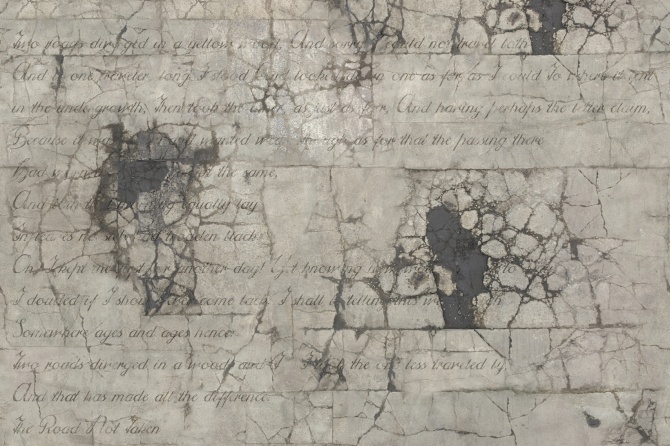 Two roads diverged in a yellow wood, And sorry I could not travel both
And be one traveler, long I stood And looked down one as far as I could To where it bent
in the undergrowth; Then took the other, as just as fair, And having perhaps the better claim,
Because it was and wanted wear Though as for that the passing there
Had worn the same,
And both that morning equally lay
In leaves no step had trodden black
Oh, I kept the first for another day! Yet knowing how way to
I doubted if I should ever come back. I shall be telling this with
Somewhere ages and ages hence:
Two roads diverged in a wood, and I the one less traveled by,
And that has made all the difference
The Road Not Taken